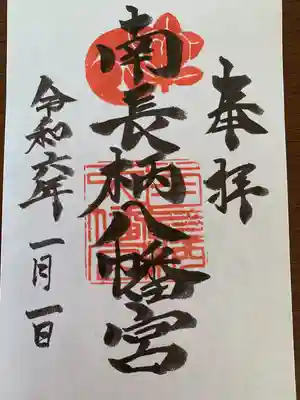 奉拝
南長柄八幡宮
令和六年
一月一日